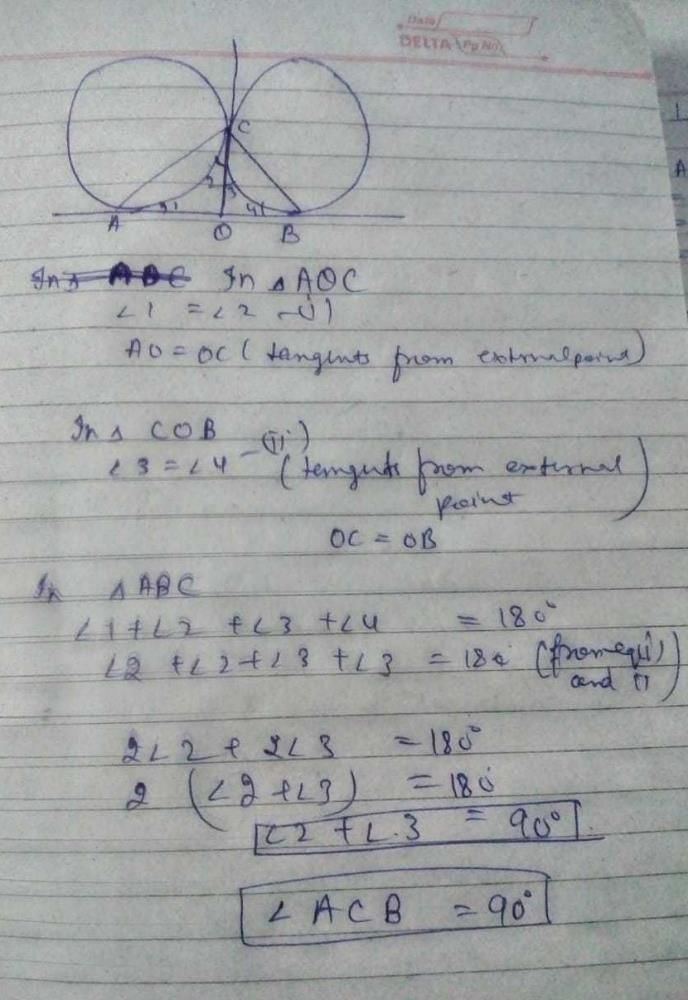 Date
DELTA Pg No
C
2 3
1 4
A O B
In Δ ABC In Δ AOC
∠1 = ∠2 -(i)
AO = OC (tangents from external point)
In Δ COB
∠3 = ∠4 -(ii) (tangents from external
point)
OC = OB
In Δ ABC
∠1 + ∠2 + ∠3 + ∠4 = 180°
∠2 + ∠2 + ∠3 + ∠3 = 180 (from eq (i)
and ii)
2∠2 + 2∠3 = 180°
2 (∠2 + ∠3) = 180°
∠2 + ∠3 = 90°
∠ACB = 90°